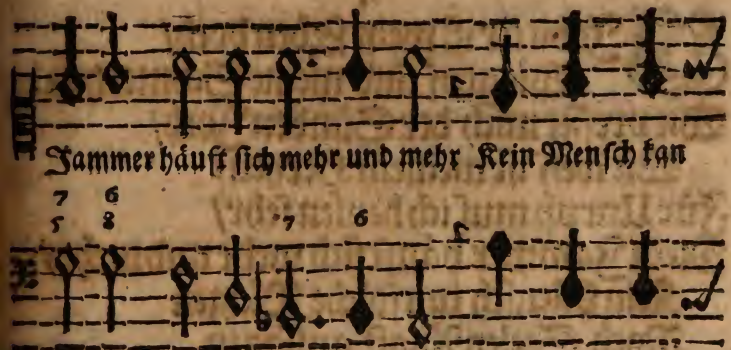 Jammer häuft sich mehr und mehr Kein Mensch kan
7 6
5 8 7 6